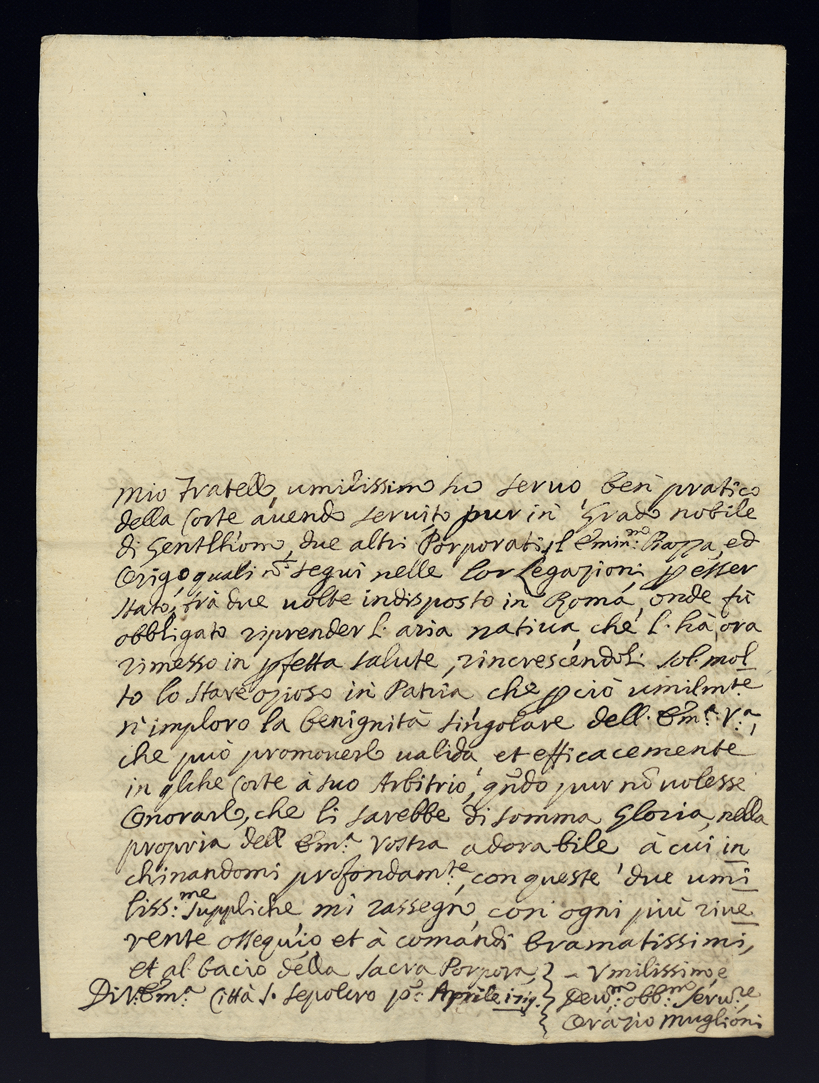 mio Fratello, umilissimo suo seruo, ben pratico
della Corte auendo seruito pur in Grado nobile
di Gentlhomo, due altri Porporati, l' Emin:mo Piazza, ed
Origo, quali segui nelle lor Legazioni p esser
stato, frà due uolte indisposto in Roma, onde fù
obbligato riprender l' aria natiua, che l' hà, ora
rimesso in pfetta salute, rincrescendoli sol mol
to lo stare ozioso in Patria che p ciò umilmte
n' imploro la benignità singolare dell' Em:a V:a,
che può promouerlo ualida et efficacemente
in qlche Corte à suo Arbitrio, qndo pur nō uolesse
Onorarlo, che li sarebbe di somma Gloria, nella
propria dell' Em:a Vostra adorabile à cui in
chinandomi profondam:te, con queste due umi
liss:me suppliche mi rassegno con ogni più riue
rente ossequio et à comandi bramatissimi,
et al bacio della sacra Porpora
Di V. Em:a Città S. Sepolcro p:o Aprile
Vmilissimo, e
Deu:mo obb:mo Seru:re
Orazio Muglioni